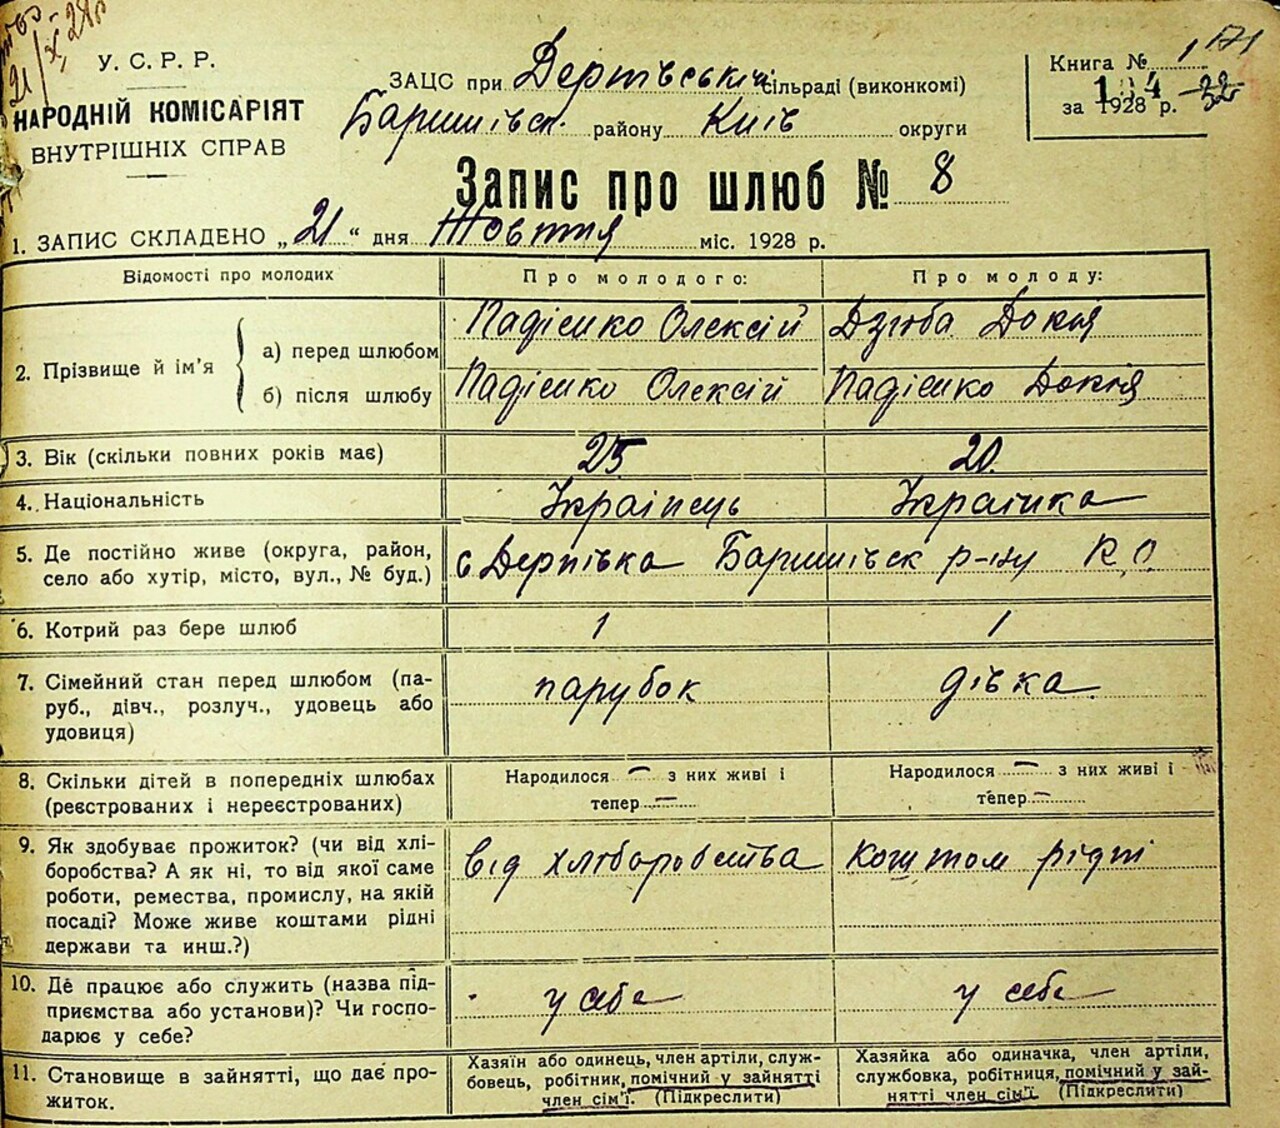 21/X 28р
У. С. Р. Р.
НАРОДНІЙ КОМІСАРІЯТ
ВНУТРІШНІХ СПРАВ
ЗАЦС при Дернівській сільраді (виконкомі)
Баришівськ. району Київ округи
Книга № 1
за 1928 р.
171
134
32
Запис про шлюб № 8
1. ЗАПИС СКЛАДЕНО „21“ дня Жовтня міс. 1928 р.
Відомості про молодих
Про молодого:
Про молоду:
2. Прізвище й ім’я
а) перед шлюбом
Падієнко Олексій
Дзюба Докія
б) після шлюбу
Падієнко Олексій
Падієнко Докія
3. Вік (скільки повних років має)
25
20
4. Національність
Українець
Українка
5. Де постійно живе (округа, район,
село або хутір, місто, вул., № буд.)
с Дернівка Баришівськ р-ну К. О.
6. Котрий раз бере шлюб
1
1
7. Сімейний стан перед шлюбом (па-
руб., дівч., розлуч., удовець або
удовиця)
парубок
дівка
8. Скільки дітей в попередніх шлюбах
(реєстрованих і нереєстрованих)
Народилося — з них живі і
тепер —
Народилося — з них живі і
тепер —
9. Як здобуває прожиток? (чи від хлі-
боробства? А як ні, то від якої саме
роботи, ремества, промислу, на якій
посаді? Може живе коштами рідні
держави та инш.?)
від хліборобства
коштом рідні
10. Де працює або служить (назва під-
приємства або установи)? Чи госпо-
дарює у себе?
у себе
у себе
11. Становище в зайнятті, що дає про-
житок.
Хазяїн або одинець, член артіли, служ-
бовець, робітник, помічний у зайнятті
член сім’ї. (Підкреслити)
Хазяйка або одиначка, член артіли,
службовка, робітниця, помічний у зай-
нятті член сім’ї (Підкреслити)